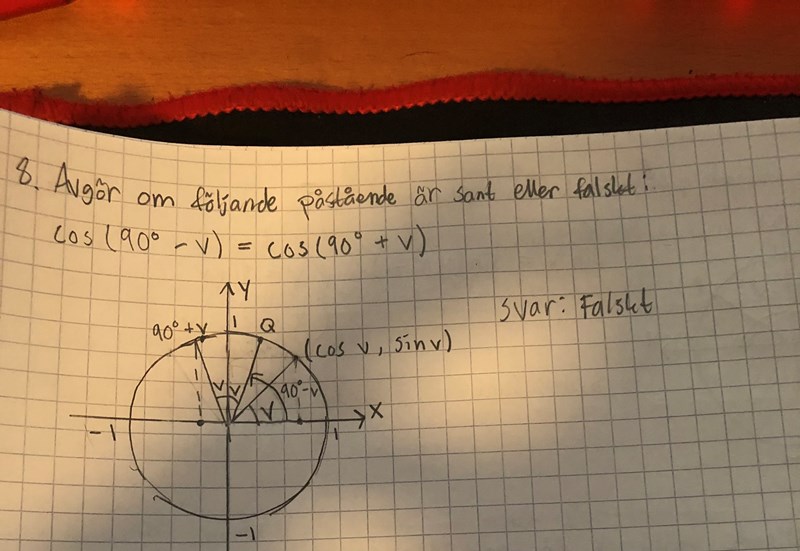 8. Avgör om följande påstående är sant eller falskt:
cos(90° - v) = cos(90° + v)
Y
svar: Falskt
90° + v 1 Q
(cos v, sin v)
v v 90°-v
v X
-1 1
-1